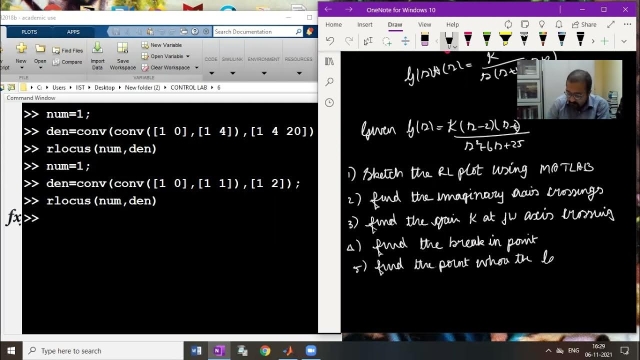 2019b - academic use
PLOTS
APPS
Find Files
Compare
Print
New Variable
Open Variable
Clear Workspace
FILE
VARIABLE
Users
IIST
Desktop
New folder (2)
CONTROL LAB
6
Command Window
>> num=1;
>> den=conv(conv([1 0],[1 4]),[1 4 20])
>> rlocus(num,den)
>> num=1;
>> den=conv(conv([1 0],[1 1]),[1 2]);
>> rlocus(num,den)
fx >>
OneNote for Windows 10
Home
Insert
Draw
View
Help
Given
1) Sketch the RL plot using MATLAB
2) find the imaginary axis crossings
3) find the gain K at jω axis crossing
4) find the break in point
5) find the point where the
Type here to search
ENG
16:29
06-11-2021